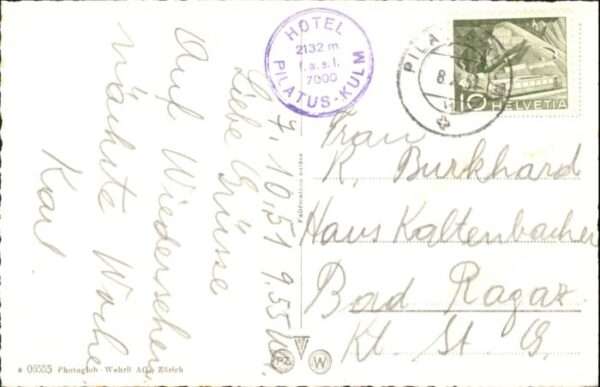 HOTEL
2132 m
f.a.s.l.
7000
PILATUS-KULM
PILA
8.
10 HELVETIA
7. 10. 51 9.55 Uhr.
Liebe Grüsse
Auf Wiedersehen
nächste Woche
Karl
Frau
K. Burkhard
Haus Kaltenbacher
Bad Ragaz
Kt. St. G.
PZ
W
06555 Photoglob-Wehrli AG. Zürich